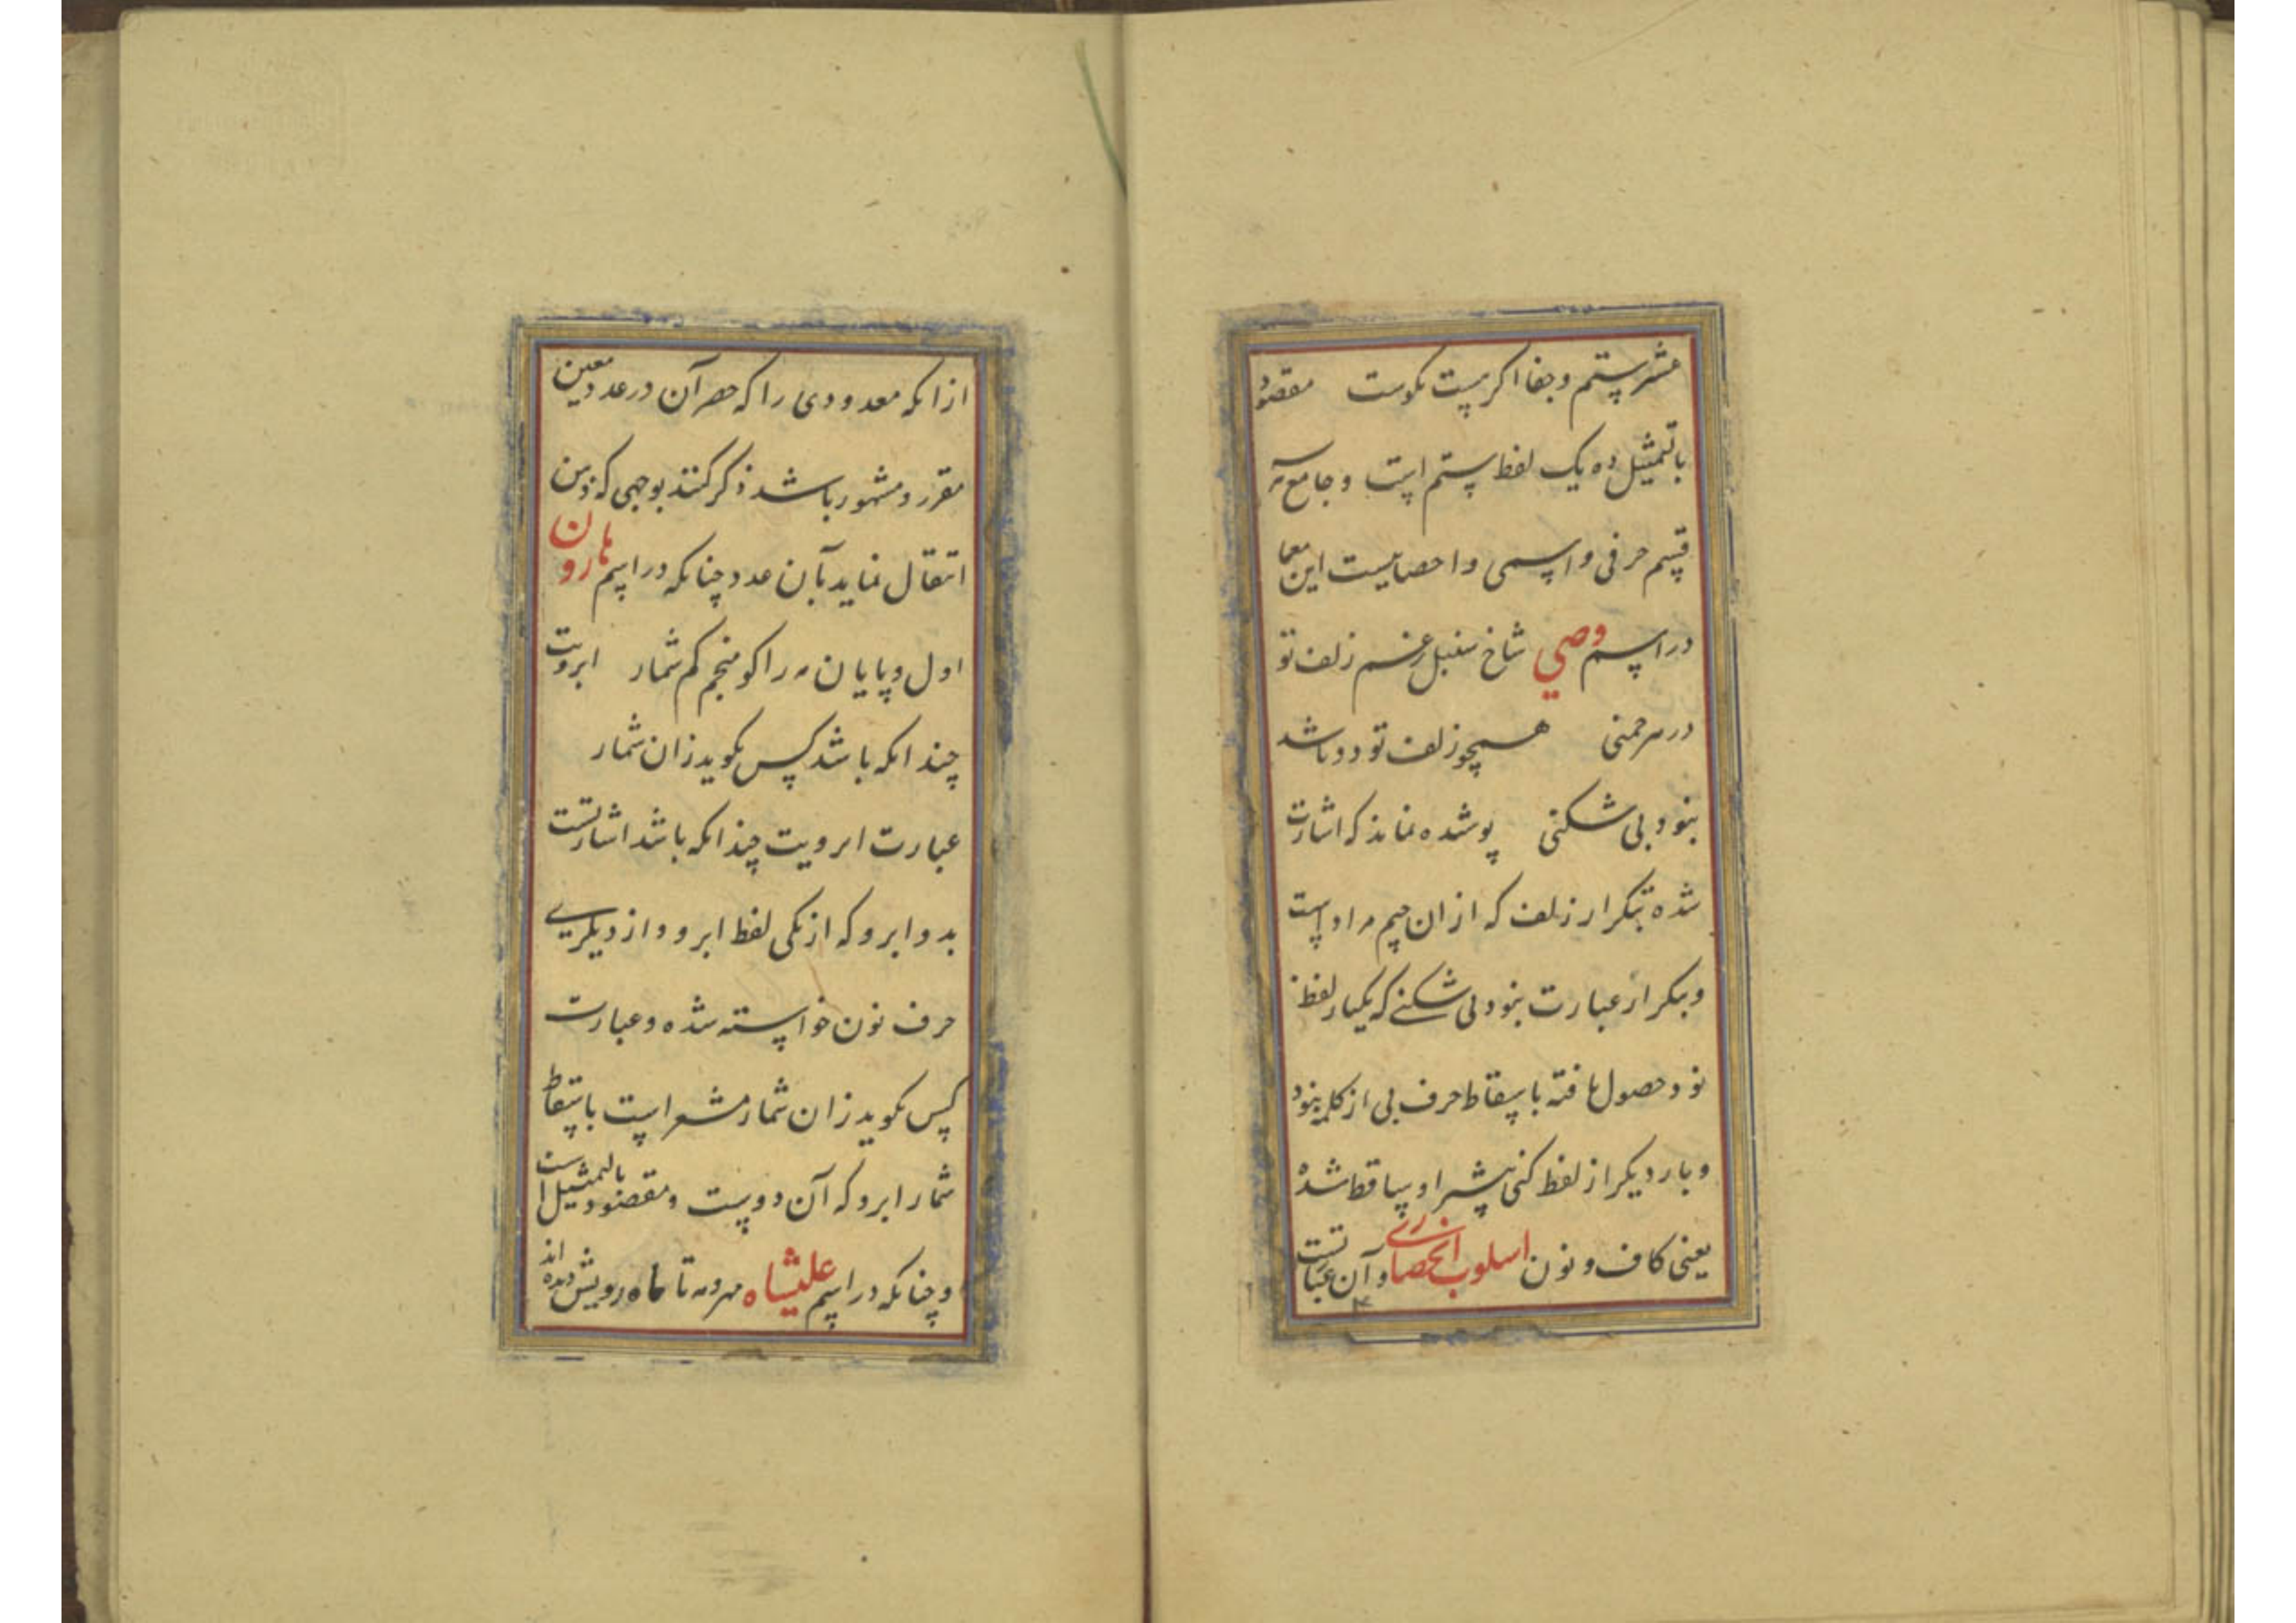 عشر ستم و جفا اگر هست نکوست مقصود
بالتمثیل ده یک لفظ ستم است و جامع سه
قسم حرفی و اسمی و احصاییست این معما
در اسم وصی شاخ سنبل زغم زلف تو
در هر چمنی همچو زلف تو دو باشد
بنود بی شکنی پوشده نماند که اشارت
شده بتکرار زلف که از ان جیم مراد است
و بتکرار عبارت بنود بی شکنی که یکبار لفظ
نود حصول یافته باسقاط حرف بی از کلمه بنود
و بار دیگر از لفظ کنی شیر او ساقط شده
یعنی کاف و نون اسلوب انحصاری و آن عبارتست
از انکه معدودی را که حصر آن در عدد معین
مقرر و مشهور باشد ذکر کنند بوجهی که ذهن
انتقال نماید بآن عدد چنانکه در اسم هارون
اول و پایان مه را کو منجم کم شمار ابرویت
چندانکه باشد کس نکوید زان شمار
عبارت ابرویت چندانکه باشد اشارتست
بدو ابرو که از یکی لفظ ابرو و از دیگری
حرف نون خواسته شده و عبارت
کس نکوید زان شمار مشعر است باسقاط
شمار ابرو که آن دویست و مقصود بالتمثیل است
و چنانکه در اسم علیشاه مهر و مه تا ماه رویش دیده اند